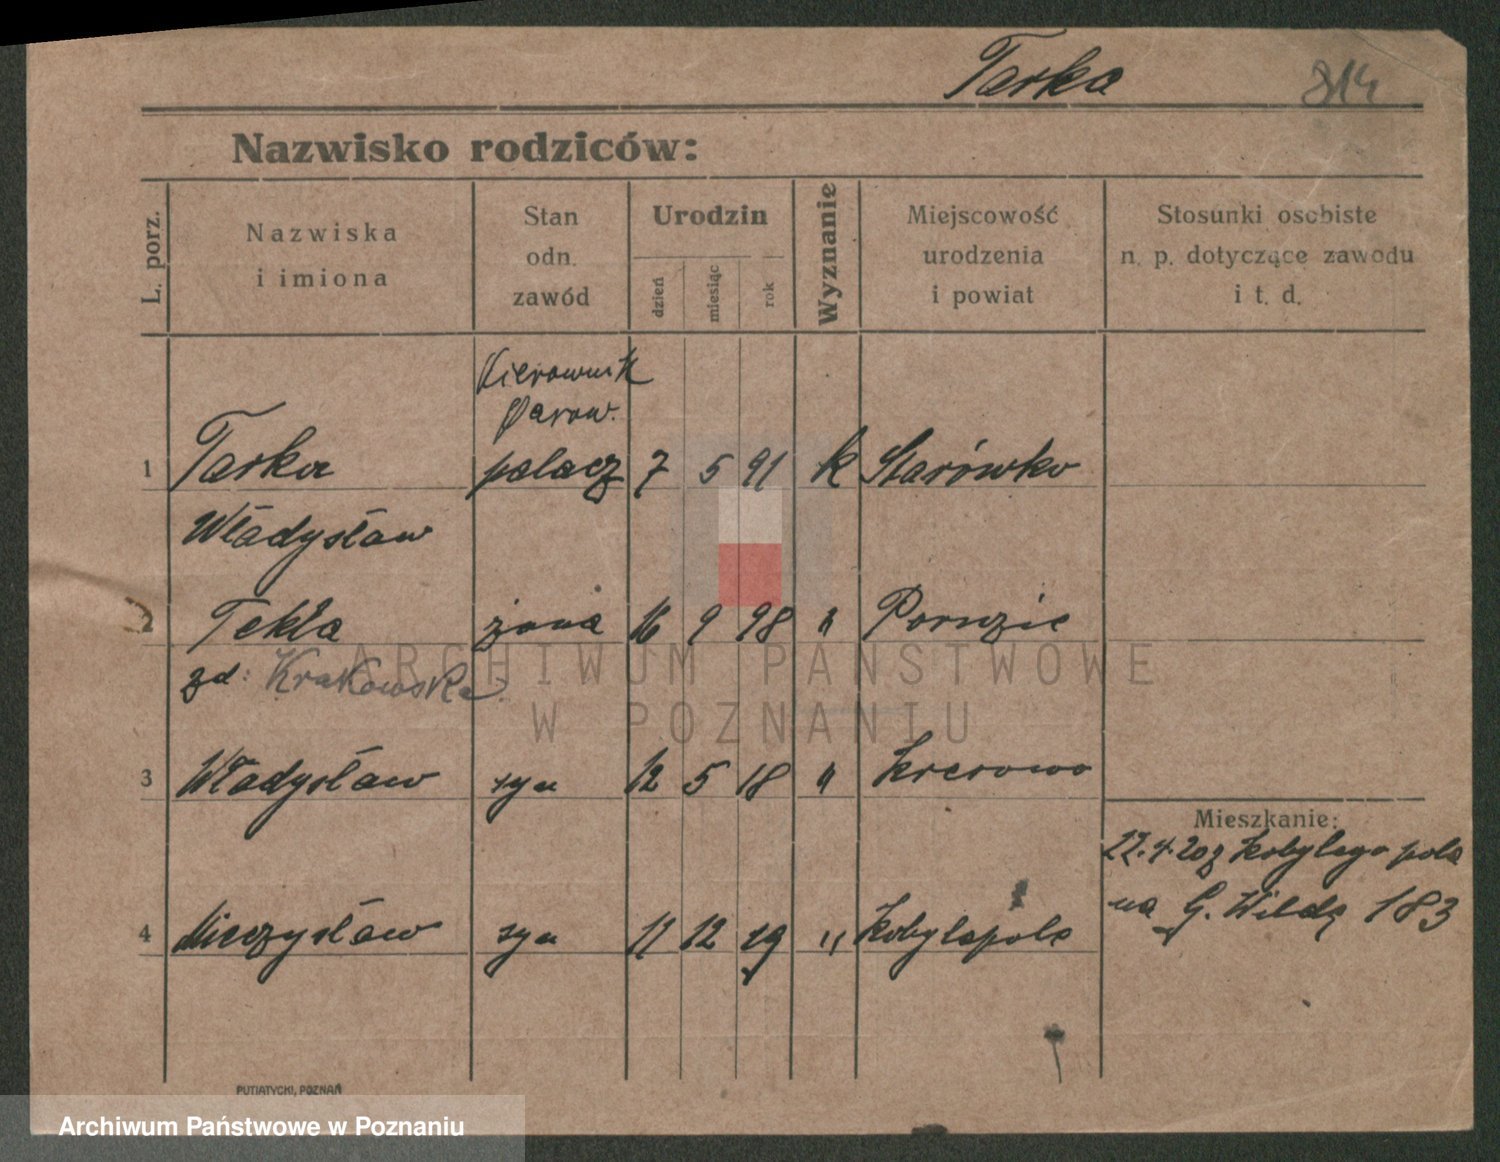 Tarka 814
Nazwisko rodziców:
L. porz.
Nazwiska
i imiona
Stan
odn.
zawód
Urodzin
dzień
miesiąc
rok
Wyznanie
Miejscowość
urodzenia
i powiat
Stosunki osobiste
n. p. dotyczące zawodu
i t. d.
Kierownik
parow.
1 Tarka palacz 7 5 91 k Starówko
Władysław
2 Tekla żona 16 9 98 "
zd: Krakowska
3 Władysław syn 12 5 18 " Krerowo
4 Mieczysław syn 11 12 19 " Kobylepole
Mieszkanie:
22.4.20 z Kobylego pola
na G. Wildę 183
PUTIATYCKI, POZNAŃ
ARCHIWUM PAŃSTWOWE
W POZNANIU
Archiwum Państwowe w Poznaniu